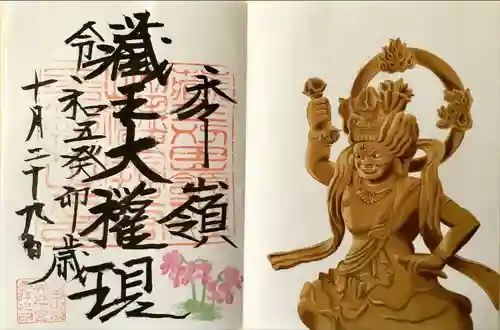 奉嶺
蔵王大権現
令和五癸卯歳
十月二十九日